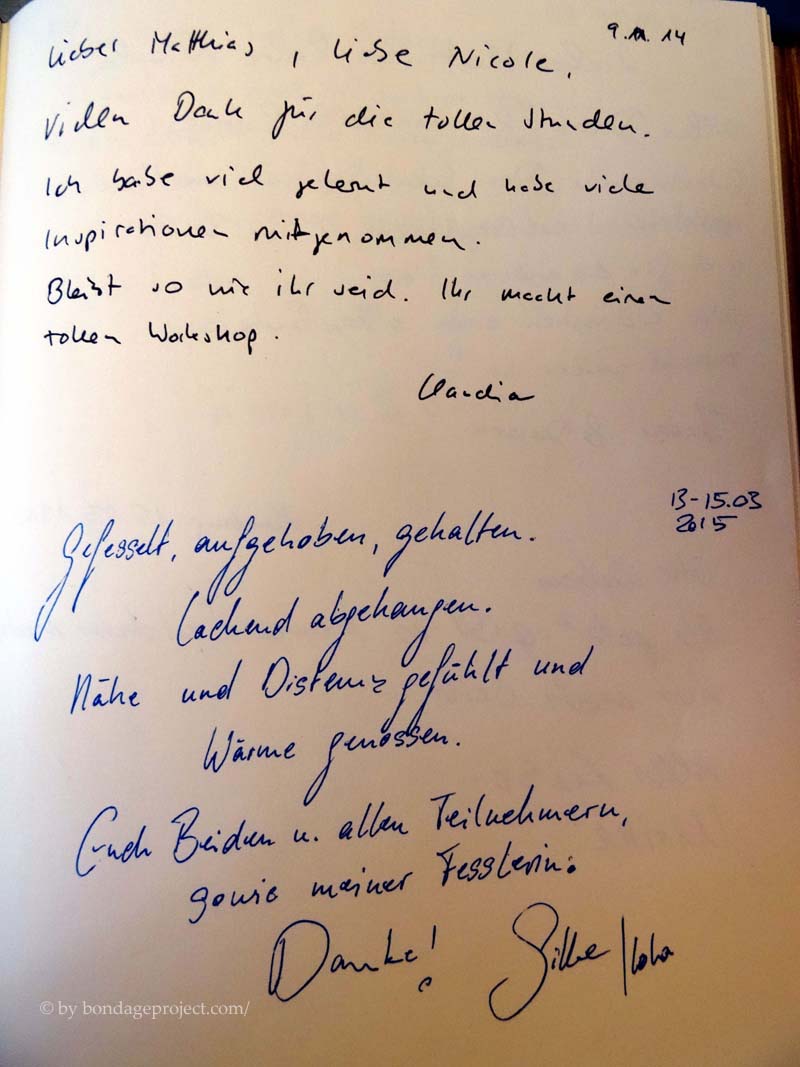 9.11.14
Lieber Matthias, liebe Nicole,
Vielen Dank für die tollen Stunden.
Ich habe viel gelernt und habe viele
Inspirationen mitgenommen.
Bleibt so wie ihr seid. Ihr macht einen
tollen Workshop.
Claudia
13-15.03
2015
Gefesselt, aufgehoben, gehalten.
Lachend abgehangen.
Nähe und Distanz gefühlt und
Wärme genossen.
Euch Beiden u. allen Teilnehmern,
sowie meiner Fesslerin:
Danke! Silke /
© by bondageproject.com/